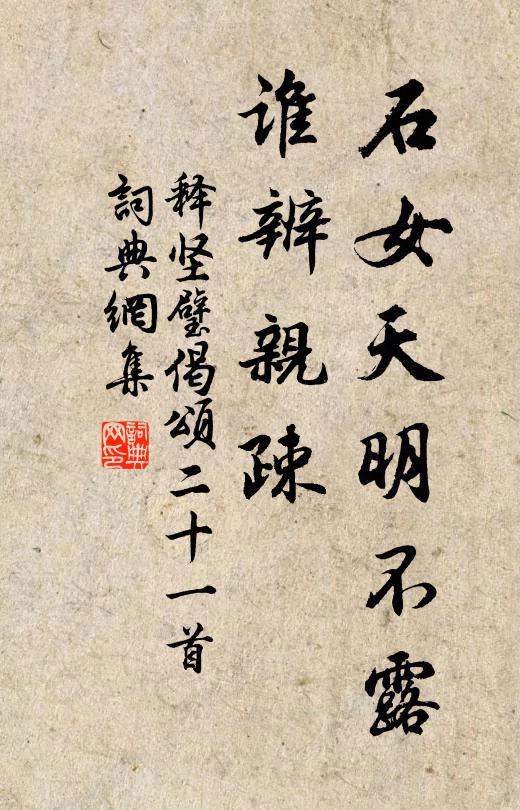 石女天明不露
谁辨親疎
释坚璧偈頌二十一首
詞典網集
詞典网印